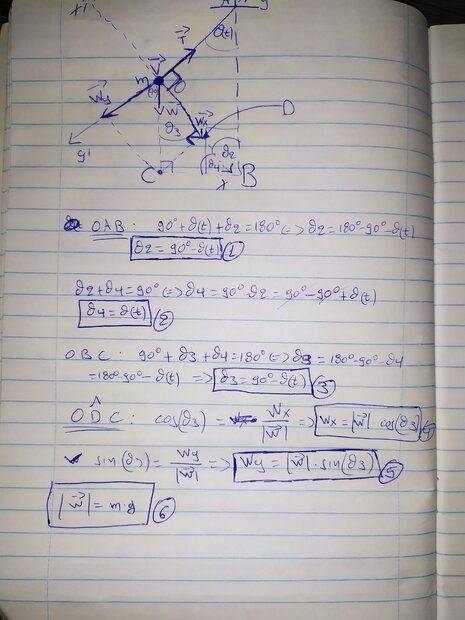 ϑ(t)
T
m
W
Wy
Wx
ϑ3
D
ϑ2
ϑ4
y'
C
B
OAB: 90°+ϑ(t)+ϑ2=180° => ϑ2=180°-90°-ϑ(t)
ϑ2=90°-ϑ(t) 1
ϑ2+ϑ4=90° => ϑ4=90°-ϑ2=90°-90°+ϑ(t)
ϑ4=ϑ(t) 2
OBC: 90°+ϑ3+ϑ4=180° => ϑ3=180°-90°-ϑ4
=180°-90°-ϑ(t) => ϑ3=90°-ϑ(t) 3
ODC: cos(ϑ3)= Wx/|W| => Wx=|W|·cos(ϑ3) 4
sin(ϑ3)= Wy/|W| => Wy=|W|·sin(ϑ3) 5
|W|=m·g 6